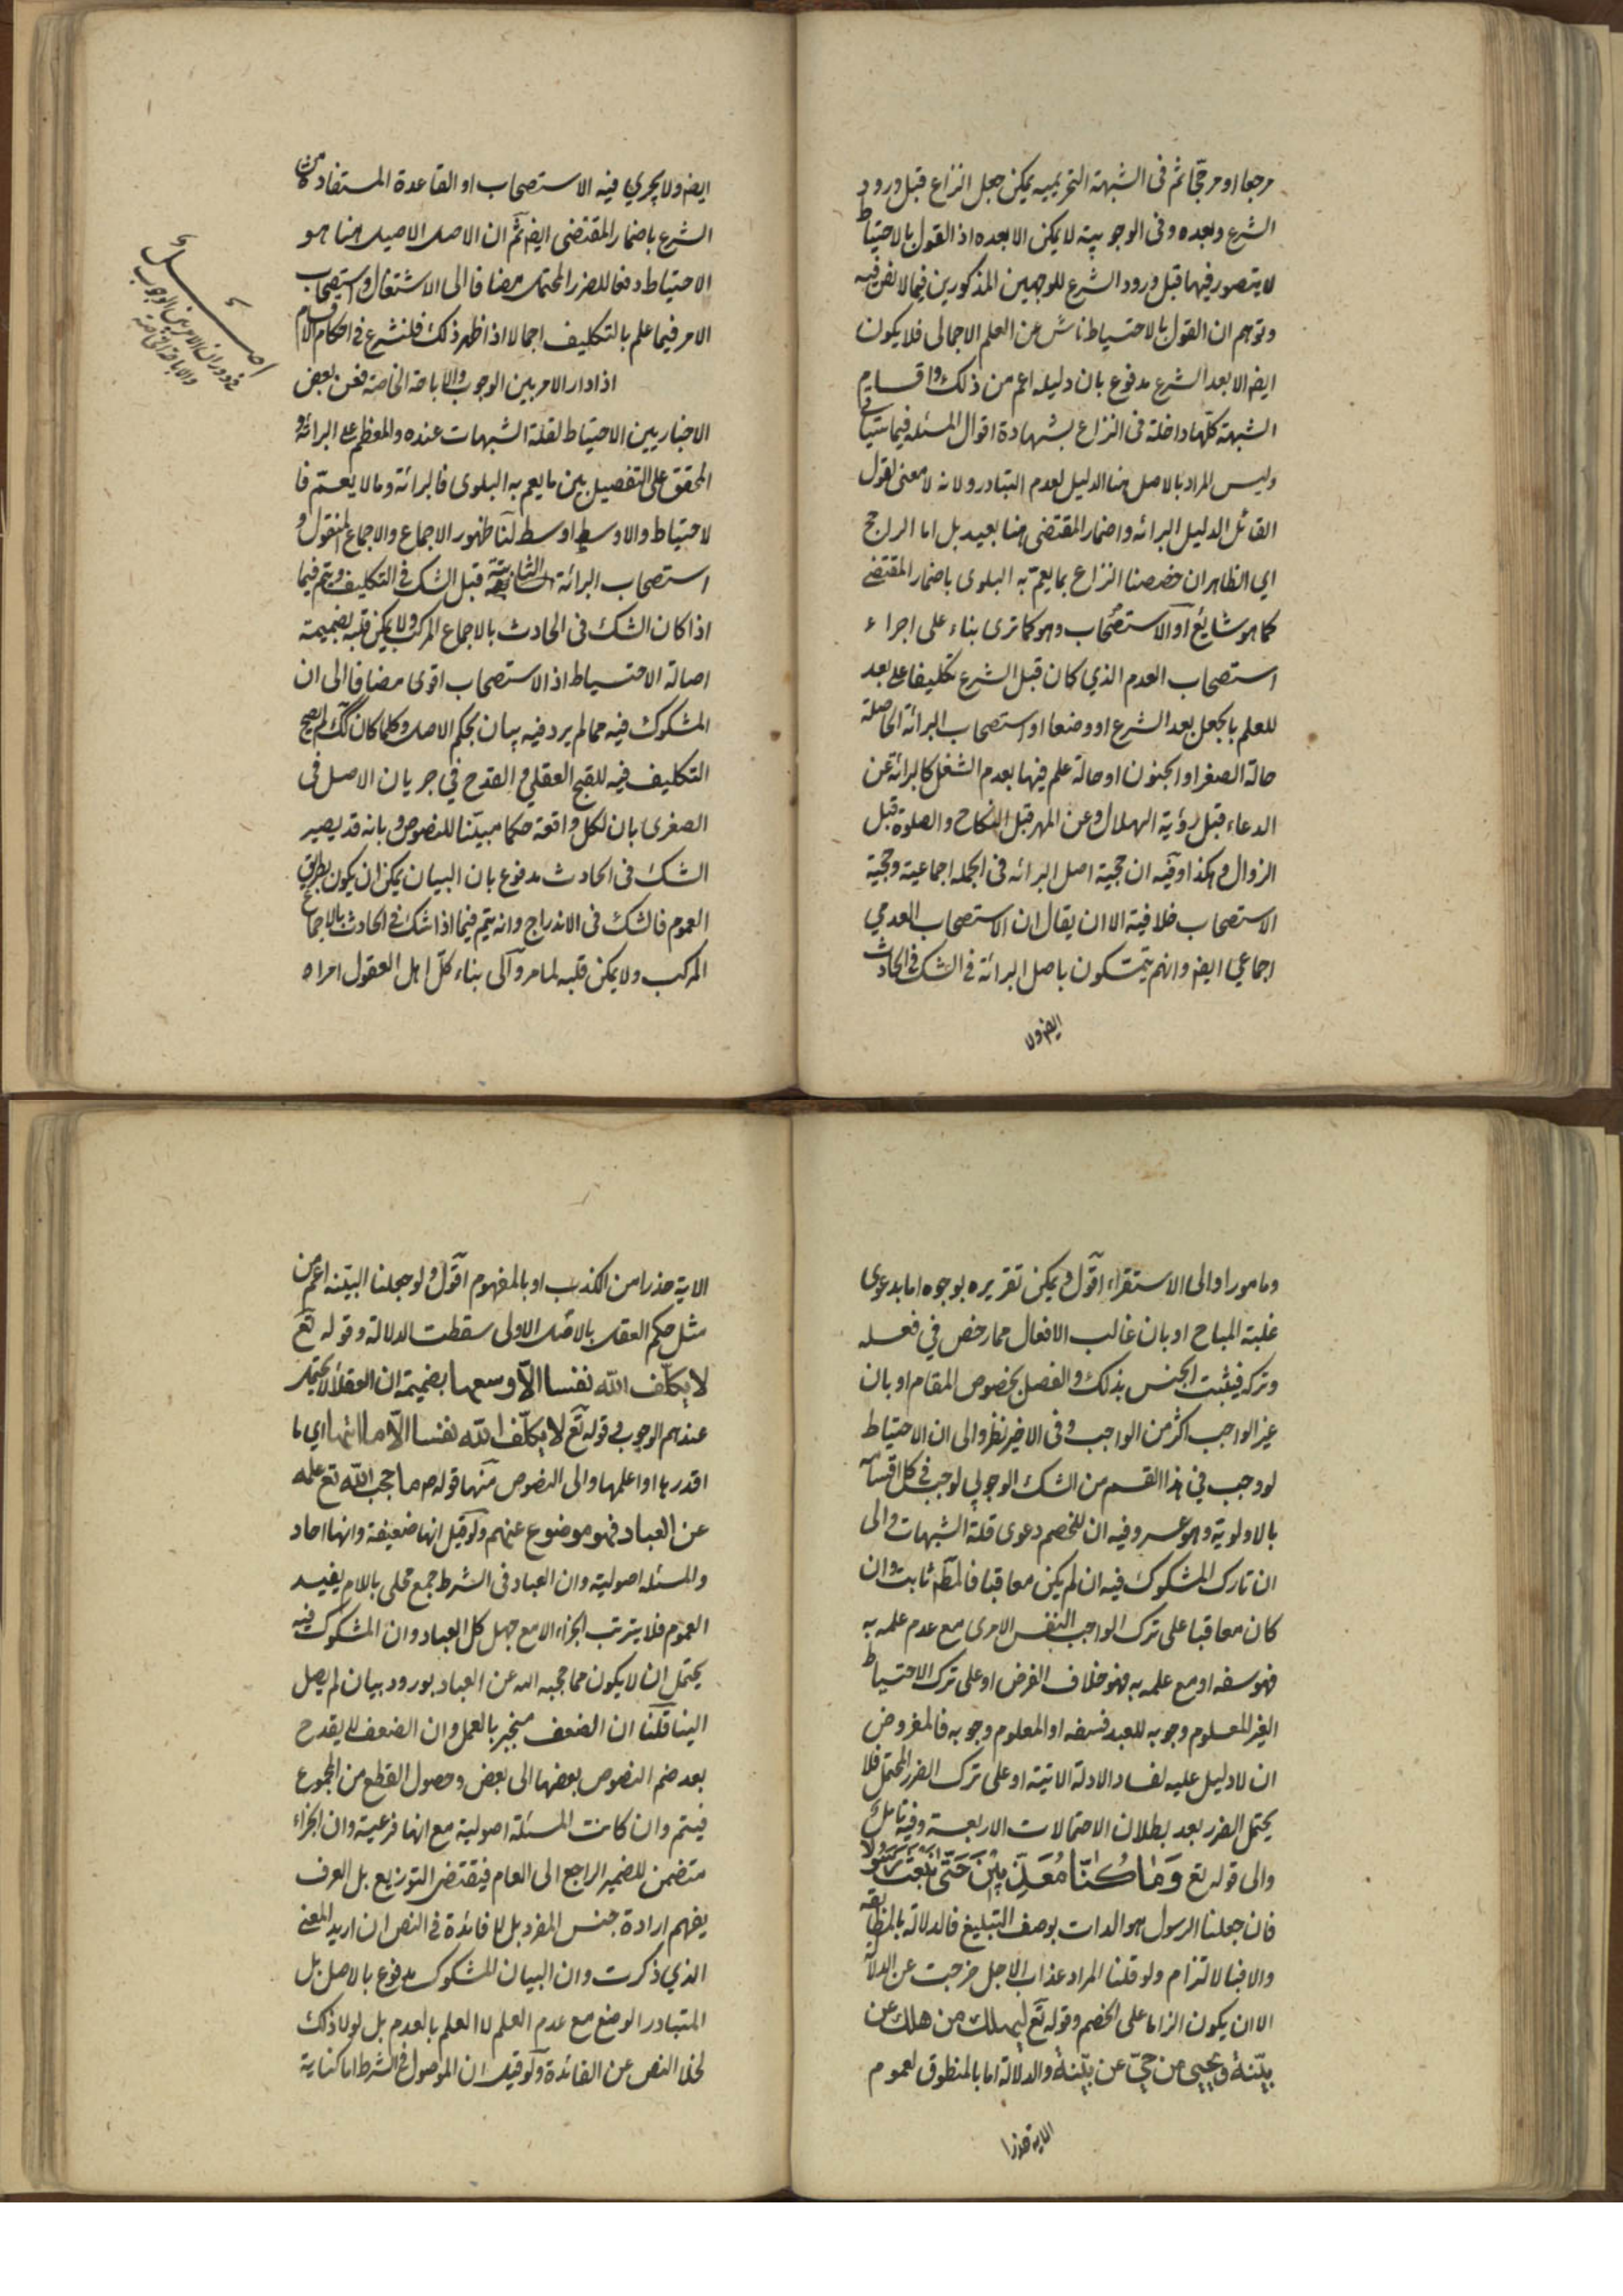 مرجعا او مرجحا ثم فى الشبهة التحريميه يمكن جعل النزاع قبل ورود
الشرع وبعده وفى الوجوبية لا يمكن الا بعده اذ القول بالاحتياط
لا يتصور فيها قبل ورود الشرع للوجهين المذكورين فيما لا نص فيه
وتوهم ان القول بالاحتياط ناش عن العلم الاجمالى فلا يكون
ايضا الا بعد الشرع مدفوع بان دليله اعم من ذلك واقسام
الشبهة كلها داخلة فى النزاع بشهادة اقوال المسئله فيما سياتى
وليس المراد بالاصل هنا الدليل لعدم التبادر ولانه لا معنى لقول
القائل الدليل البرائه واضمار المقتضى هنا بعيد بل اما الراجح
اي الظاهر ان خصصنا النزاع بما يعم به البلوى باضمار المقتضى
كما هو شايع او الاستصحاب وهو كما ترى بناء على اجراء
استصحاب العدم الذي كان قبل الشرع تكليفا على بعد
للعلم بالجعل بعد الشرع او وضعا او استصحاب البرائة الحاصلة
حالة الصغر او الجنون او حالة علم فيها بعدم الشغل كالبرائة عن
الدعاء قبل رؤية الهلال وعن المهر قبل النكاح والصلوة قبل
الزوال وهكذا وفيه ان حجية اصل البرائه فى الجمله اجماعية وحجية
الاستصحاب خلافية الا ان يقال ان الاستصحاب العدمي
اجماعي ايضا وانهم يتمسكون باصل البرائة في الشك في الحادث
ايضا ولا
ايضا ولا يجري فيه الاستصحاب او القاعدة المستفادة من
الشرع باضمار المقتضى ايضا ثم ان الاصل الاصيل هنا هو
الاحتياط دفعا للضرر المحتمل مضافا الى الاشتغال واستصحاب
الامر فيما علم بالتكليف اجمالا اذا ظهر ذلك فلنشرع في احكام الاقسام
اذا دار الامر بين الوجوب والاباحة الخاصة فعن بعض
الاخباريين الاحتياط لقلة الشبهات عنده والمعظم على البرائة و
المحقق على التفصيل بين ما يعم به البلوى فالبرائة وما لا يعم فا
لاحتياط والاوسط اوسط لنا ظهور الاجماع والاجماع المنقول و
استصحاب البرائة الثابتة قبل الشك في التكليف ويتم فيما
اذا كان الشك فى الحادث بالاجماع المركب ولا يمكن قلبه بضميمة
اصالة الاحتياط اذ الاستصحاب اقوى مضافا الى ان
المشكوك فيه مما لم يرد فيه بيان بحكم الاصل وكلما كان كك لم يصح
التكليف فيه للقبح العقلي والقدح في جريان الاصل فى
الصغرى بان لكل واقعة حكما مبينا للنصوص وبانه قد يصير
الشك فى الحادث مدفوع بان البيان يمكن ان يكون بطريق
العموم فالشك فى الاندراج وانه يتم فيما اذا شك في الحادث بالاجماع
المركب ولا يمكن قلبه لما مر والى بناء كل اهل العقول امراه
اصل
في دوران الامر بين الوجوب
والاباحة الخاصة
ومامورا والى الاستقراء اقول ويمكن تقريره بوجوه اما بدعوى
غلبة المباح او بان غالب الافعال مما رخص في فعله
وتركه فيثبت الجنس بذلك والفصل بخصوص المقام او بان
غير الواجب اكثر من الواجب وفى الاخير نظر والى ان الاحتياط
لو وجب في هذا القسم من الشك الوجوبي لوجب في كل اقسامه
بالاولوية وهو عسر وفيه ان للخصم دعوى قلة الشبهات والى
ان تارك المشكوك فيه ان لم يكن معاقبا فالمط ثابت وان
كان معاقبا على ترك الواجب النفس الامرى مع عدم علمه به
فهو سفه او مع علمه به فهو خلاف الفرض او على ترك الاحتياط
الغير المعلوم وجوبه للعبد فسفه او المعلوم وجوبه فالمفروض
ان لا دليل عليه لفساد الادلة الاتية او على ترك الضرر المحتمل فلا
يحتمل الضرر بعد بطلان الاحتمالات الاربعة وفيه تامل
والى قوله تع وَمَا كُنَّا مُعَذِّبِينَ حَتَّى نَبْعَثَ رَسُولًا
فان جعلنا الرسول هو الذات بوصف التبليغ فالدلالة بالمطابقة
والا فبالالتزام ولو قلنا المراد عذاب الاجل خرجت عن الدلالة
الا ان يكون الزاما على الخصم وقوله تع ليهلك من هلك عن
بيّنة ويحيى من حيّ عن بيّنة والدلالة اما بالمنطوق لعموم
الاية حذرا
الاية حذرا من الكذب او بالمفهوم اقول ولو جعلنا البينه اعم من
مثل حكم العقل بالاصل الاولى سقطت الدلالة وقوله تع
لا يكلّف الله نفسا الّا وسعها بضميمة ان العقلاء لا يحتمل
عندهم الوجوب وقوله تع لا يكلّف الله نفسا الّا ما اتيها اي ما
اقدرها او اعلمها والى النصوص منها قوله م ما حجب الله تع علمه
عن العباد فهو موضوع عنهم ولو قيل انها ضعيفة وانها احاد
والمسئله اصولية وان العباد فى الشرط جمع محلى باللام يفيد
العموم فلا يترتب الجزاء الا مع جهل كل العباد وان المشكوك فيه
يحتمل ان لا يكون مما حجبه الله عن العباد بورود بيان لم يصل
الينا قلنا ان الضعف منجبر بالعمل وان الضعف لا يقدح
بعد ضم النصوص بعضها الى بعض وحصول القطع من المجموع
فيتم وان كانت المسئلة اصولية مع انها فرعية وان الجزاء
متضمن للضمير الراجع الى العام فيقتضى التوزيع بل العرف
يفهم ارادة جنس المفرد بل لا فائدة في النص ان اريد المعنى
الذي ذكرت وان البيان للمشكوك مدفوع بالاصل بل
المتبادر الوضع مع عدم العلم لا العلم بالعدم بل لولا ذلك
لخلا النص عن الفائدة ولو قيل ان الموصول في الشرط اما كناية